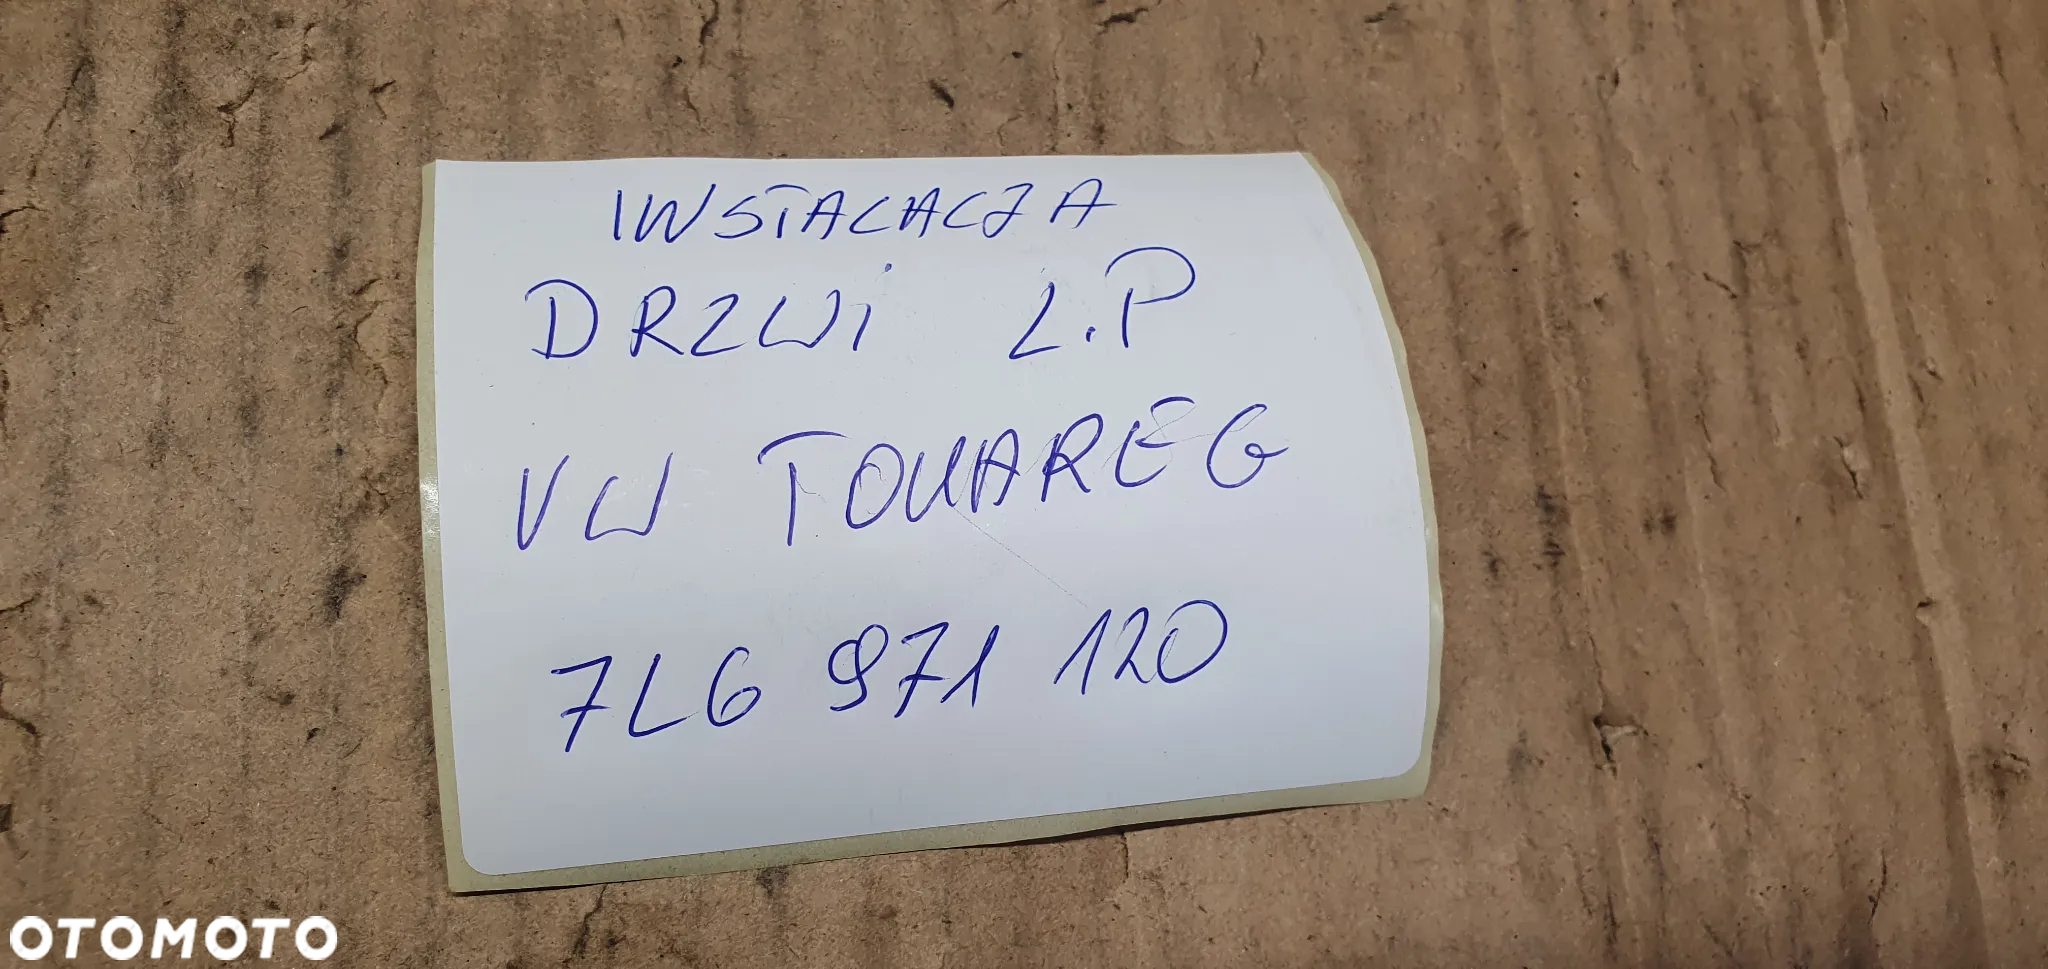 INSTALACJA
DRZWI L.P
VW TOUAREG
7L6 971 120
OTOMOTO